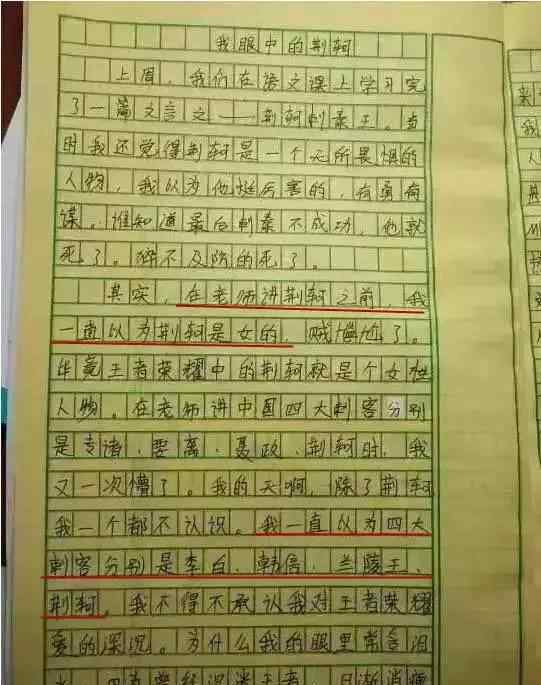 我眼中的荆轲
上周，我们在语文课上学习完
了一篇文言文——荆轲刺秦王。当
时我还觉得荆轲是一个无所畏惧的
人物，我以为他挺厉害的，有勇有
谋。谁知道最后刺秦不成功，他就
死了。猝不及防的死了。
其实，在老师讲荆轲之前，我
一直以为荆轲是女的，贼尴尬了。
毕竟王者荣耀中的荆轲就是个女性
人物。在老师讲中国四大刺客分别
是专诸、要离、聂政、荆轲时，我
又一次懵了。我的天啊，除了荆轲
我一个都不认识。我一直以为四大
刺客分别是李白、韩信、兰陵王、
荆轲。我不得不承认我对王者荣耀
爱的深沉。为什么我的眼里常含泪
来
我
人